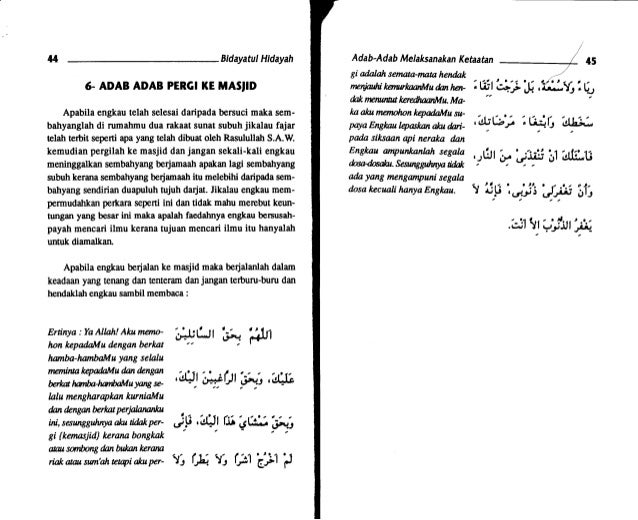 44 Bidayatul Hidayah
6- ADAB ADAB PERGI KE MASJID
Apabila engkau telah selesai daripada bersuci maka sem-
bahyanglah di rumahmu dua rakaat sunat subuh jikalau fajar
telah terbit seperti apa yang telah dibuat oleh Rasulullah S.A.W.
kemudian pergilah ke masjid dan jangan sekali-kali engkau
meninggalkan sembahyang berjamaah apakan lagi sembahyang
subuh kerana sembahyang berjamaah itu melebihi daripada sem-
bahyang sendirian duapuluh tujuh darjat. Jikalau engkau mem-
permudahkan perkara seperti ini dan tidak mahu merebut keun-
tungan yang besar ini maka apalah faedahnya engkau bersusah-
payah mencari ilmu kerana tujuan mencari ilmu itu hanyalah
untuk diamalkan.
Apabila engkau berjalan ke masjid maka berjalanlah dalam
keadaan yang tenang dan tenteram dan jangan terburu-buru dan
hendaklah engkau sambil membaca :
Ertinya : Ya Allah! Aku memo-
hon kepadaMu dengan berkat
hamba-hambaMu yang selalu
meminta kepadaMu dan dengan
berkat hamba-hambaMu yang se-
lalu mengharapkan kurniaMu
dan dengan berkat perjalananku
ini, sesungguhnya aku tidak per-
gi {kemasjid} kerana bongkak
atau sombong dan bukan kerana
riak atau sum'ah tetapi aku per-
اَللّٰهُمَّ بِحَقِّ السَّائِلِيْنَ
عَلَيْكَ، وَبِحَقِّ الرَّاغِبِيْنَ اِلَيْكَ،
وَبِحَقِّ مَمْشَايَ هٰذَا اِلَيْكَ، فَاِنِّى
لَمْ اَخْرُجْ اَشَرًا وَلَا بَطَرًا وَلَا
Adab-Adab Melaksanakan Ketaatan 45
gi adalah semata-mata hendak
menjauhi kemurkaanMu dan hen-
dak menuntut keredhaanMu. Ma-
ka aku memohon kepadaMu su-
paya Engkau lepaskan aku dari-
pada siksaan api neraka dan
Engkau ampunkanlah segala
dosa-dosaku. Sesungguhnya tidak
ada yang mengampuni segala
dosa kecuali hanya Engkau.
رِيَاءً وَلَاسُمْعَةً، بَلْ خَرَجْتُ اِتِّقَاءَ
سَخَطِكَ وَابْتِغَاءَ مَرْضَاتِكَ،
فَاَسْئَلُكَ اَنْ تُنْقِذَنِى مِنَ النَّارِ،
وَاَنْ تَغْفِرَلِى ذُنُوْبِى، فَاِنَّهُ لَا
يَغْفِرُ الذُّنُوْبَ اِلَّا اَنْتَ.